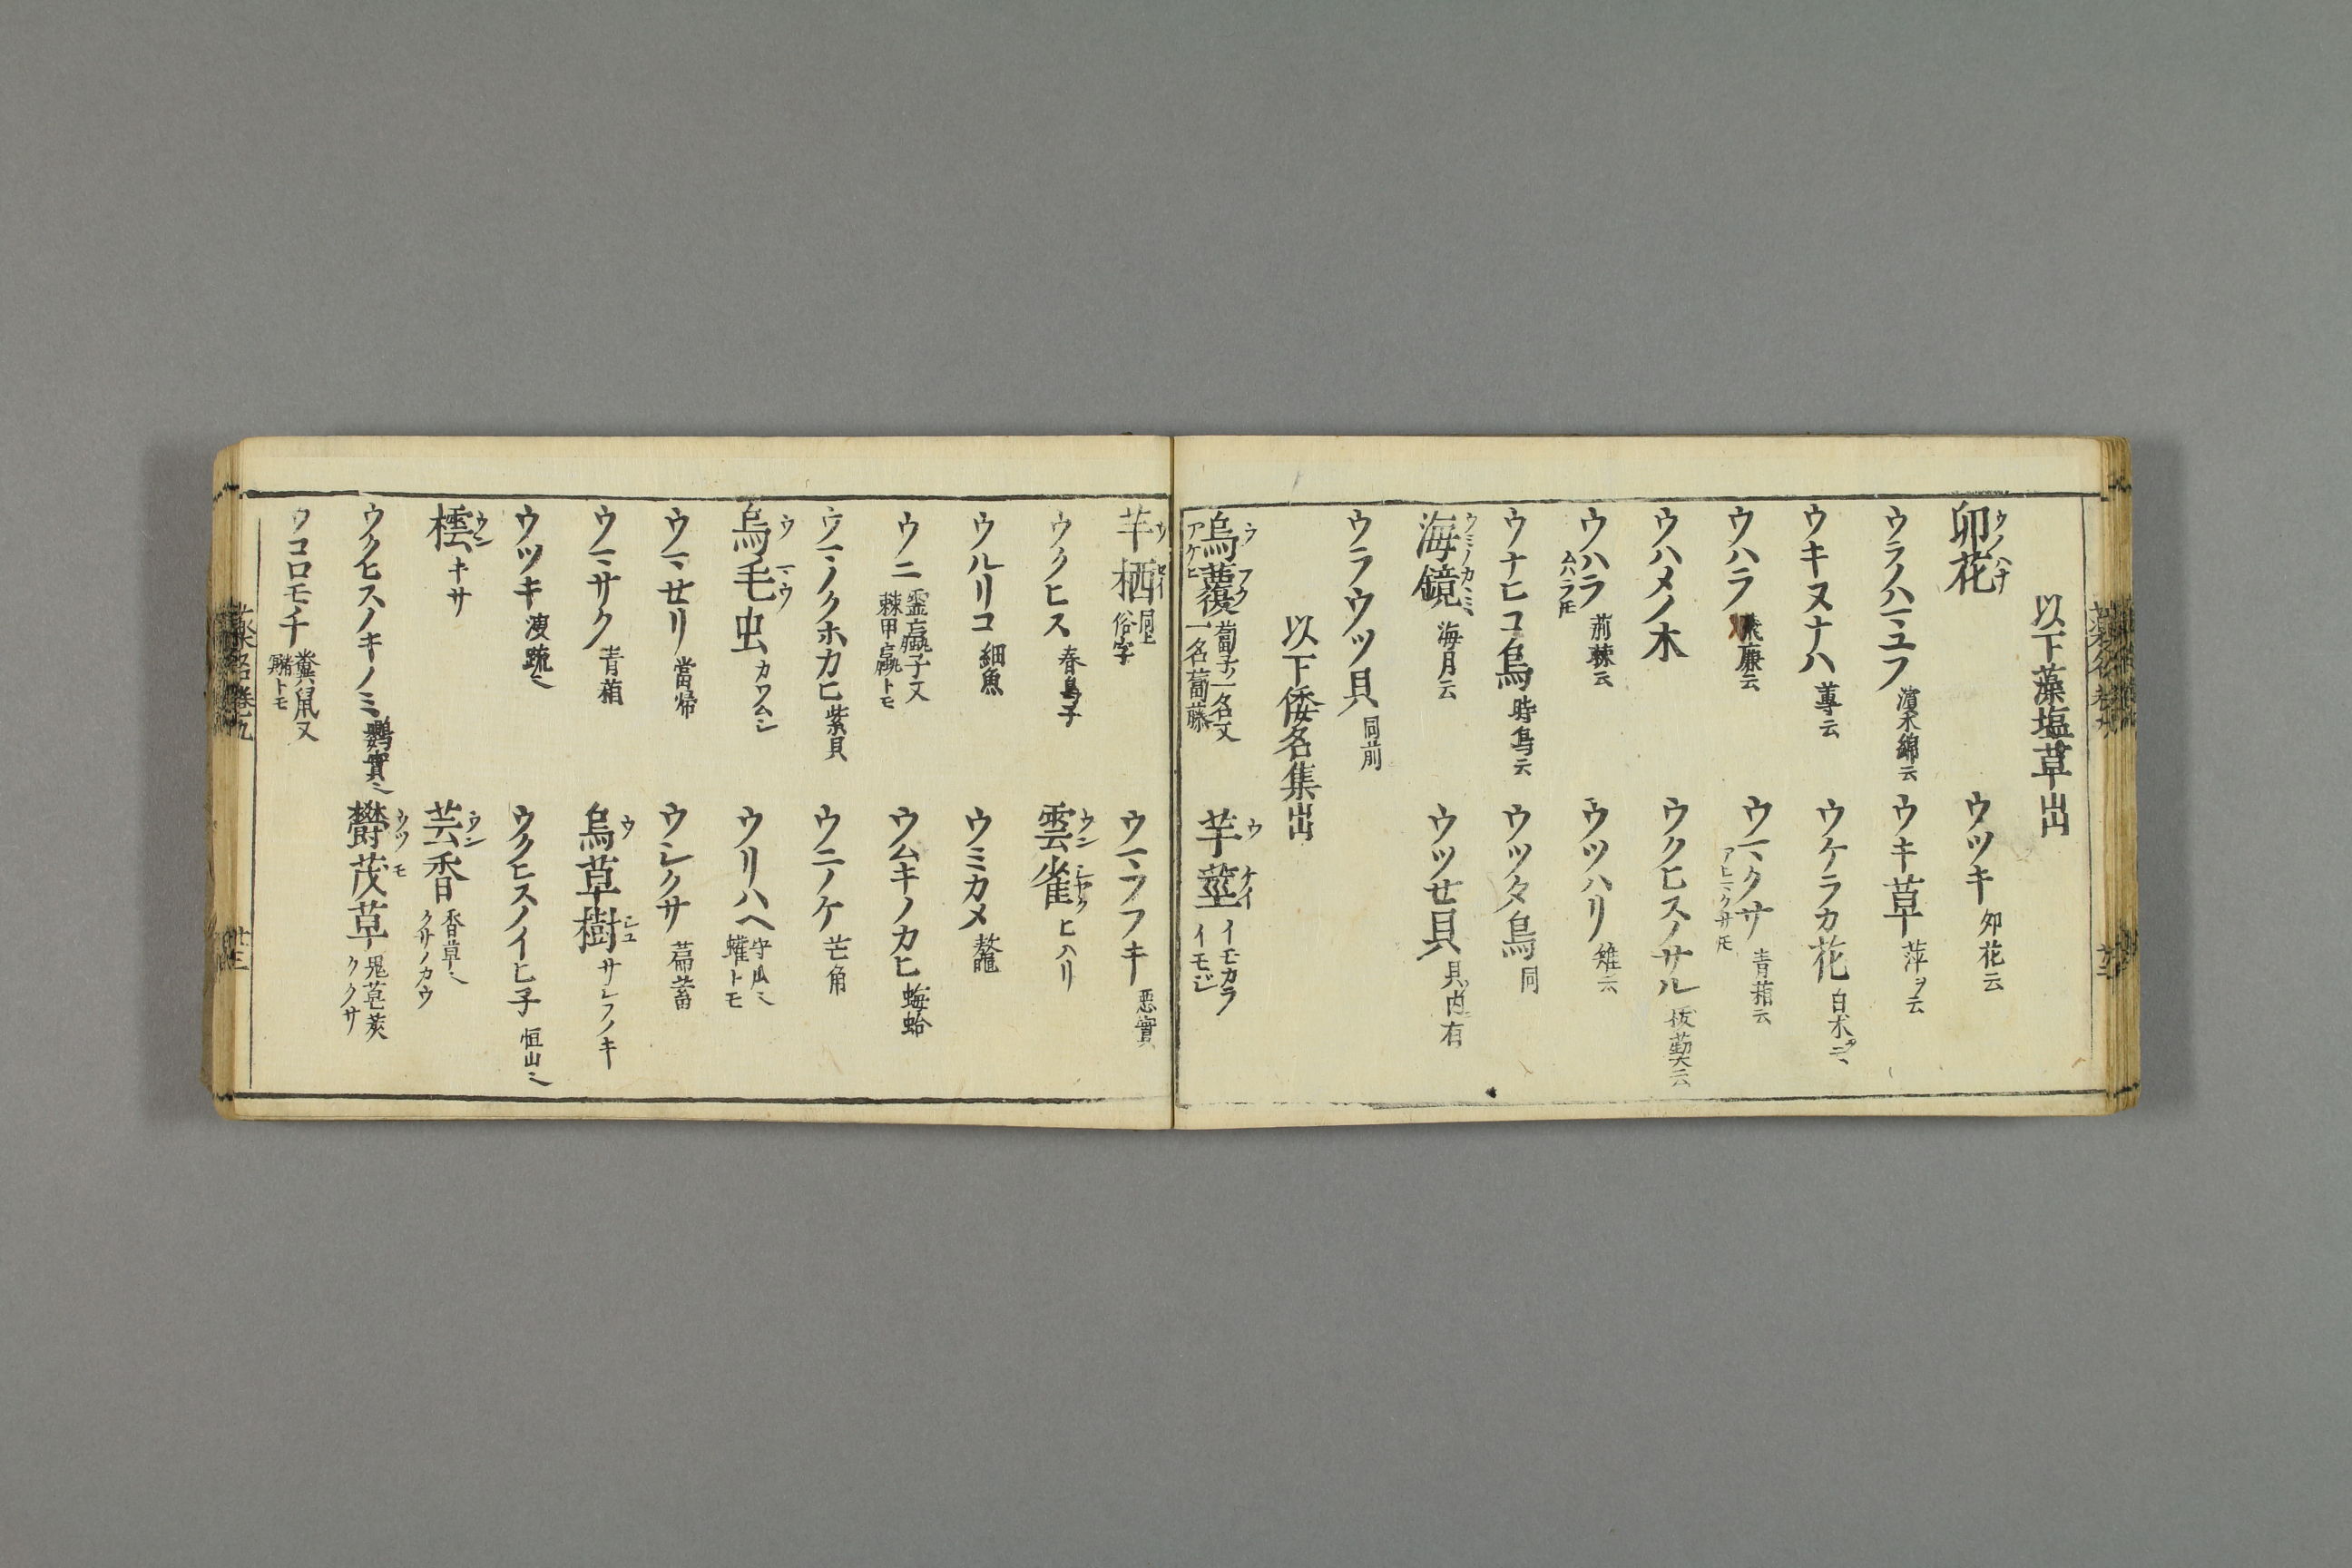 以下藻塩草出
卯花 ウノハナ
ウツキ 卯花云
ウラノハマユフ 濱木綿云
ウキ草 萍ヲ云
ウキヌナハ 蓴云
ウケラカ花 白朮
ウハラ 云
ウマクサ 青葙云
ウハメノ木
ウクヒスノサル 菝葜云
ウハラ 荊棘云 ムハラ㐧
ウツハリ 雉云
ウナヒコ鳥 時鳥云
ウツタ鳥 同
海鏡 ウミノカヽミ 海月云
ウツせ貝 貝ノ肉有
ウラウツ貝 同前
以下倭名集出
烏蕧 ウフク 葍子一名又一名葍藤 アケヒ
芋莖 ウケイ イモカラ イモジ
芋栖 同上俗字
ウマフフキ 悪實
ウクヒス 春鳥子
雲雀 ウンシヤク ヒハリ
ウルリコ 細魚
ウミカメ 鼇
ウニ 霊蠃子又棘甲蠃トモ
ウムキノカヒ 海蛤
ウマノクホカヒ 紫貝
ウニノケ 芒角
烏毛虫 ウマウ カワムシ
ウリハヘ 守瓜 蠸トモ
ウマせリ 當帰
ウシクサ 萹蓄
ウマサク 青葙
烏草樹 サシフノキ
ウツキ 溲疏
ウクヒスノイヒ子 恒山
橒 ウン キサ
芸香 ウン 香草 クサノカウ
ウクヒスノキノミ 鸎實
欝茂草 ウツモ 鬼皂莢 ククサ
ウコロモチ 糞鼠又トモ
藥名 巻九
廿三